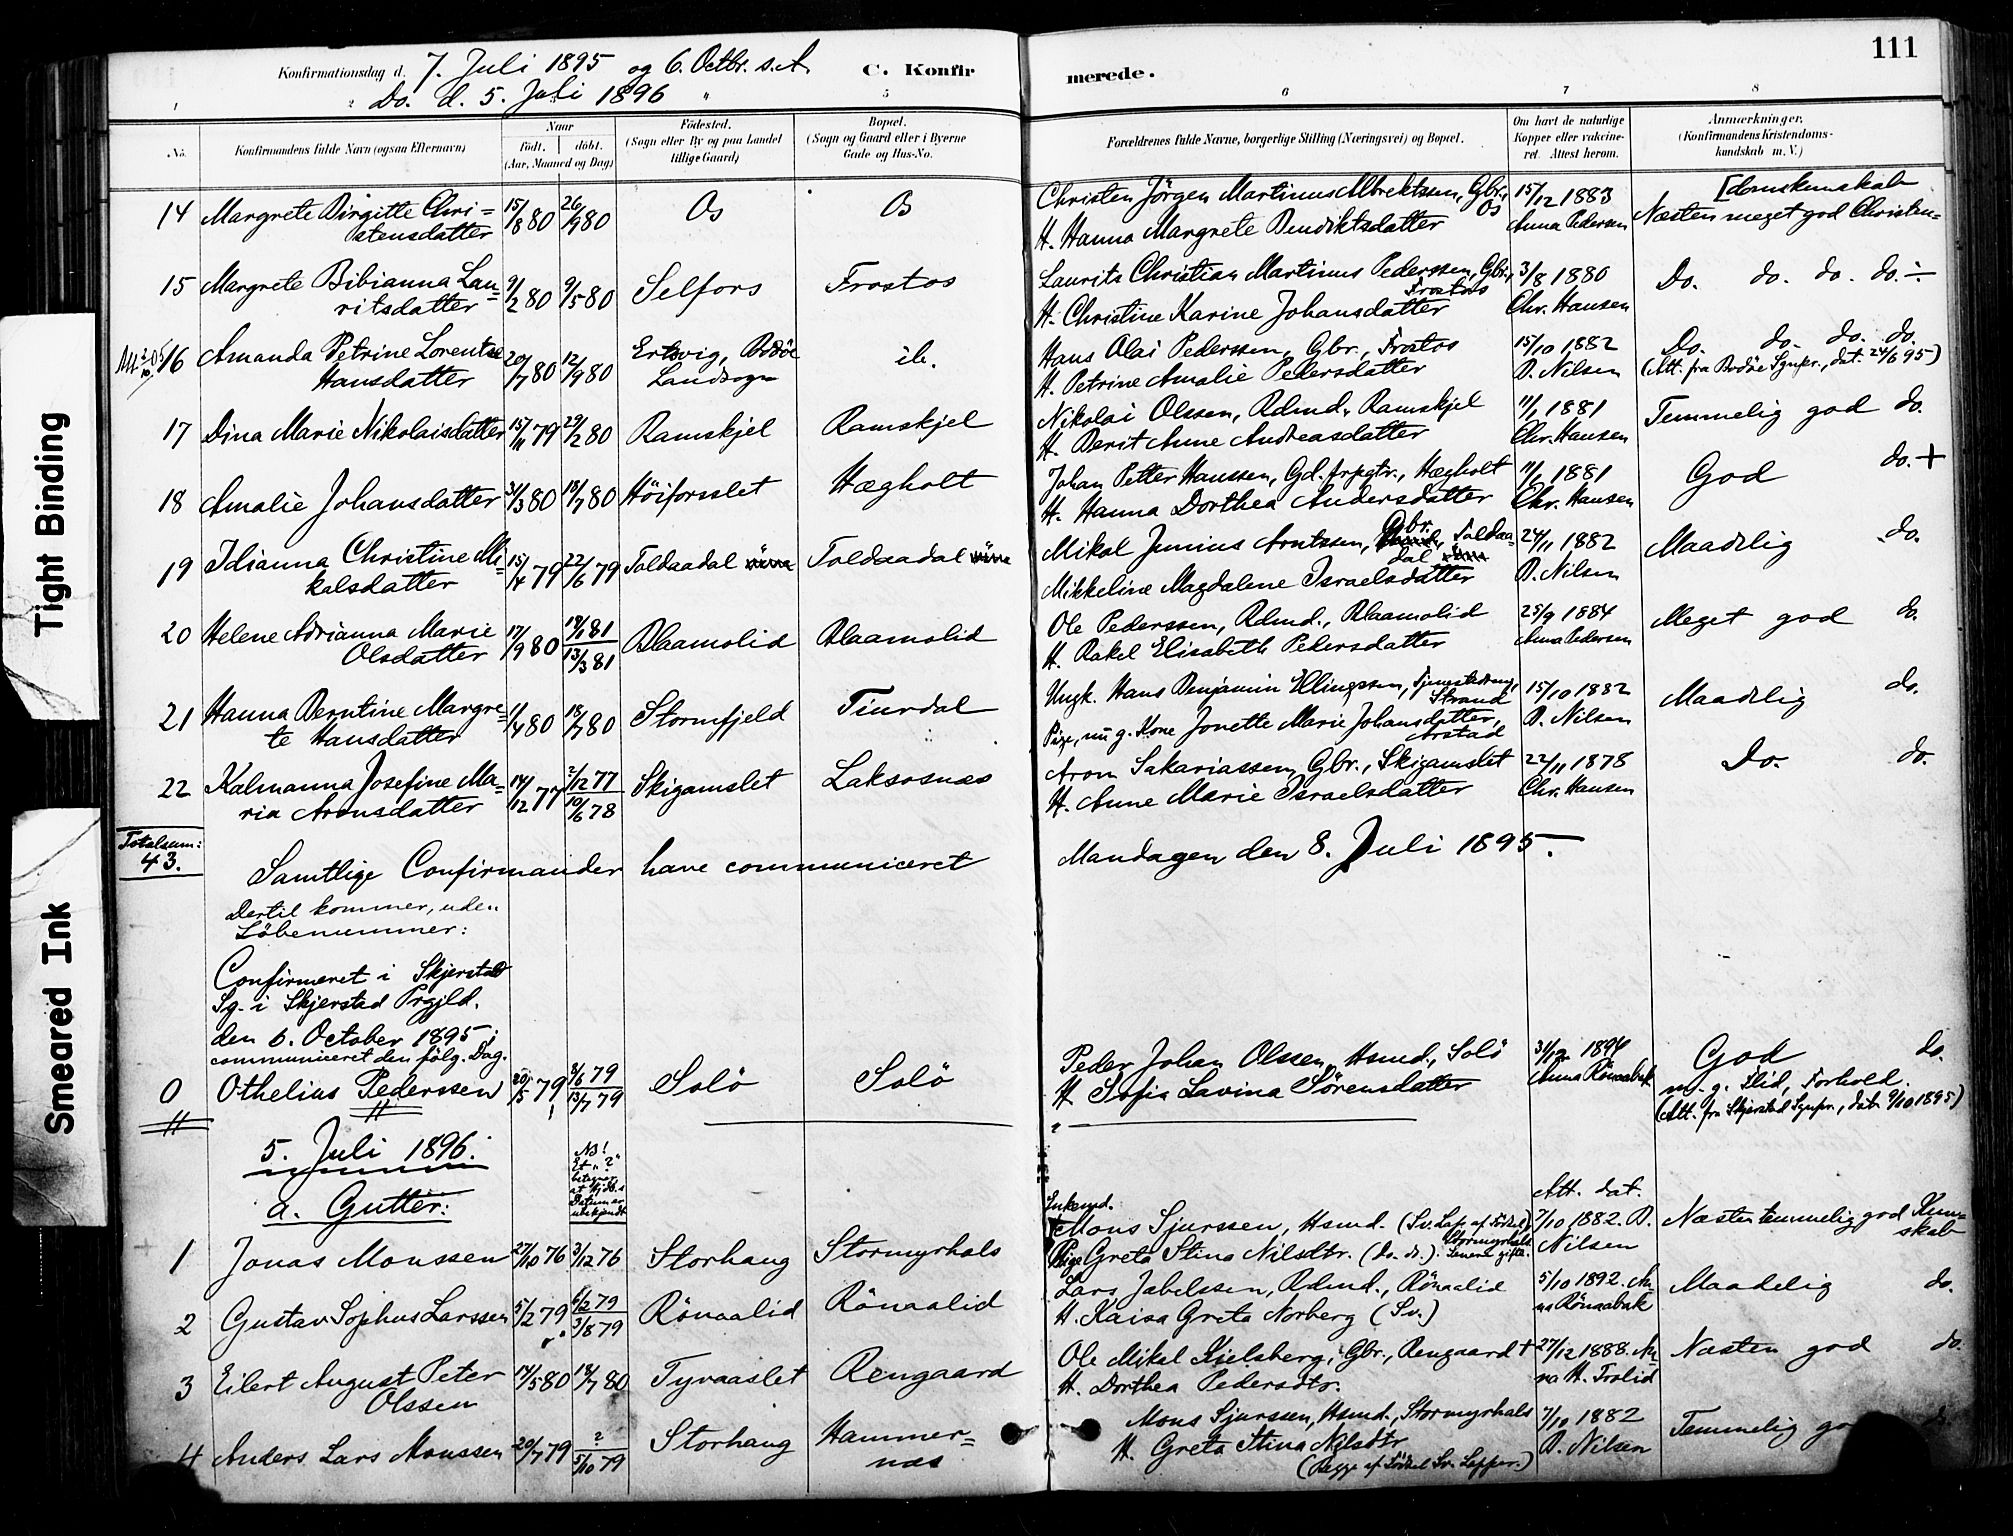 111
Konfirmationsdag d. 7. Juli 1895 og 6. Octbr. s. A. C. Konfirmerede.
Do. d. 5. Juli 1896
1 2 5 6 7 8
No. Konfirmandens fulde Navn (ogsaa Efternavn) Naar født. døbt. (Aar, Maaned og Dag) Fødested. (Sogn eller By og paa Landet tillige Gaard) Bopæl. (Sogn og Gaard eller i Byerne Gade og Hus-No. Forældrenes fulde Navne, borgerlige Stilling (Næringsvei) og Bopæl. Om havt de naturlige Kopper eller vaccineret. Attest herom. Anmærkninger. (Konfirmandens Kristendomskundskab m. V.)
14 Margrete Birgitte Chri= 15/8 80 26/9 80 Os Os Christen Jörgen Martinus Albrektssen, Gbr., Os 15/12 1883 Næsten meget god Christen= [domskunskab
stensdatter H. Hanna Margrete Bendiktsdatter Anna Pedersen
15 Margrete Bibianna Lau= 9/2 80 9/5 80 Selfors Frostos Laurits Christian Martinus Pederssen, Gbr., Frostos 3/8 1880 Do. do. do. do. ÷
ritsdatter H. Christine Karine Johansdatter Chr. Hansen
16 Amanda Petrine Lorentse 20/7 80 12/9 80 Ertsvig, Bodöe ib. Hans Olai Pederssen, Gbr., Frostos 15/10 1882 Do. do. do. do.
Hansdatter Landsogn H. Petrine Amalie Pedersdatter B. Nilsen (Att. fra Bodöe Sgnpr., dat. 24/6 95)
17 Dina Marie Nikolaisdatter 15/11 79 29/2 80 Ramskjel Ramskjel Nikolai Olssen, Rdmd., Ramskjel 11/1 1881 Temmelig god do.
H. Berit Anne Andreasdatter Chr. Hansen
18 Amalie Johansdatter 31/3 80 18/7 80 Höiforsslet Hægholt Johan Petter Hanssen, Gd. frpgtr., Hægholt 11/1 1881 God do. +
H. Hanna Dorthea Andersdatter Chr. Hansen
19 Idianna Christine Mi= 15/4 79 22/6 79 Toldaadal Toldaadal Mikal Junius Arntssen, Gbr., Toldaa= 24/11 1882 Maadelig do.
kalsdatter dal
Mikkeline Magdalene Israelsdatter B. Nilsen
20 Helene Adrianna Marie 17/9 80 19/1 81 Blaamolid Blaamolid Ole Pederssen, Rdmd., Blaamolid 25/9 1884 Meget god do.
Olsdatter 13/3 81 H. Rakel Elisabeth Pedersdatter Anna Pedersen
21 Hanna Berntine Margre= 11/4 80 18/7 80 Stormfjeld Tiurdal Ungk. Hans Benjamin Ellingssen, Strand 15/10 1882 Maadelig do.
te Hansdatter Pige, nu g. Kone Jonette Marie Johansdatter, Arstad B. Nilsen
22 Kalmanna Josefine Ma= 14/12 77 2/12 77 Skigamslet Laksosnæs Aron Sakariassen, Gbr., Skigamslet 22/11 1878 Do. do.
ria Aronsdatter 10/6 78 H. Anne Marie Israelsdatter Chr. Hansen
Totalsum:
43.
Samtlige Confirmander have communiceret Mandagen den 8. Juli 1895.
Dertil kommer, uden
Löbenummer:
Confirmeret i Skjerstad
Sg. i Skjerstad Prgjld.
den 6. October 1895;
communiceret den fölg. Dag.
0 Othelius Pederssen 20/5 79 3/6 79 Solö Solö Peder Johan Olssen, Hsmd., Solö 31/12 1894 God do.
13/7 79 H. Sofie Lavina Sörensdatter Anna Rönaabak m. g. Flid, Forhold.
(Att. fra Skjerstad Sgnpr., dat. 9/10 1895)
5. Juli 1896.
a. Gutter:
NB!
Et „?"
betegner
at Hjdb.s
Datum er
ubekjendt
Att. dat.
Enkemd.
1 Jonas Monssen 27/10 76 3/12 76 Storhaug Stormyrhals Mons Sjurssen, Hsmd. (Sv. Lap. af Födsel), Stormyrhals 7/10 1882. B. Næsten temmelig god Kun=
Pige Greta Stina Nilsdtr. (do. do.). Senere gifte. Nilsen skab
2 Gustav Sophus Larssen 5/2 79 6/2 79 Rönaalid Rönaalid Lars Jabelssen, Rdmd., Rönaalid 5/10 1892. An= Maadelig do.
3/8 79 H. Kaisa Greta Norberg (Sv.) na Rönaabak
3 Eilert August Peter 14/5 80 18/7 80 Tyvaaslet Rengaard Ole Mikal Kjelsberg, Gbr., Rengaard + 27/12 1888. An= Næsten god do.
Olssen H. Dorthea Pedersdtr. na H. Trolid
4 Anders Lars Monssen 20/7 79 ? Storhaug Hammer= Mons Sjurssen, Hsmd., Stormyrhals 7/10 1882 Temmelig go
5/10 79 næs H. Greta Stina Nilsdtr B. Nilsen
(Begge af Födsel Sv. Lapper.)
Tight Binding
Smeared Ink